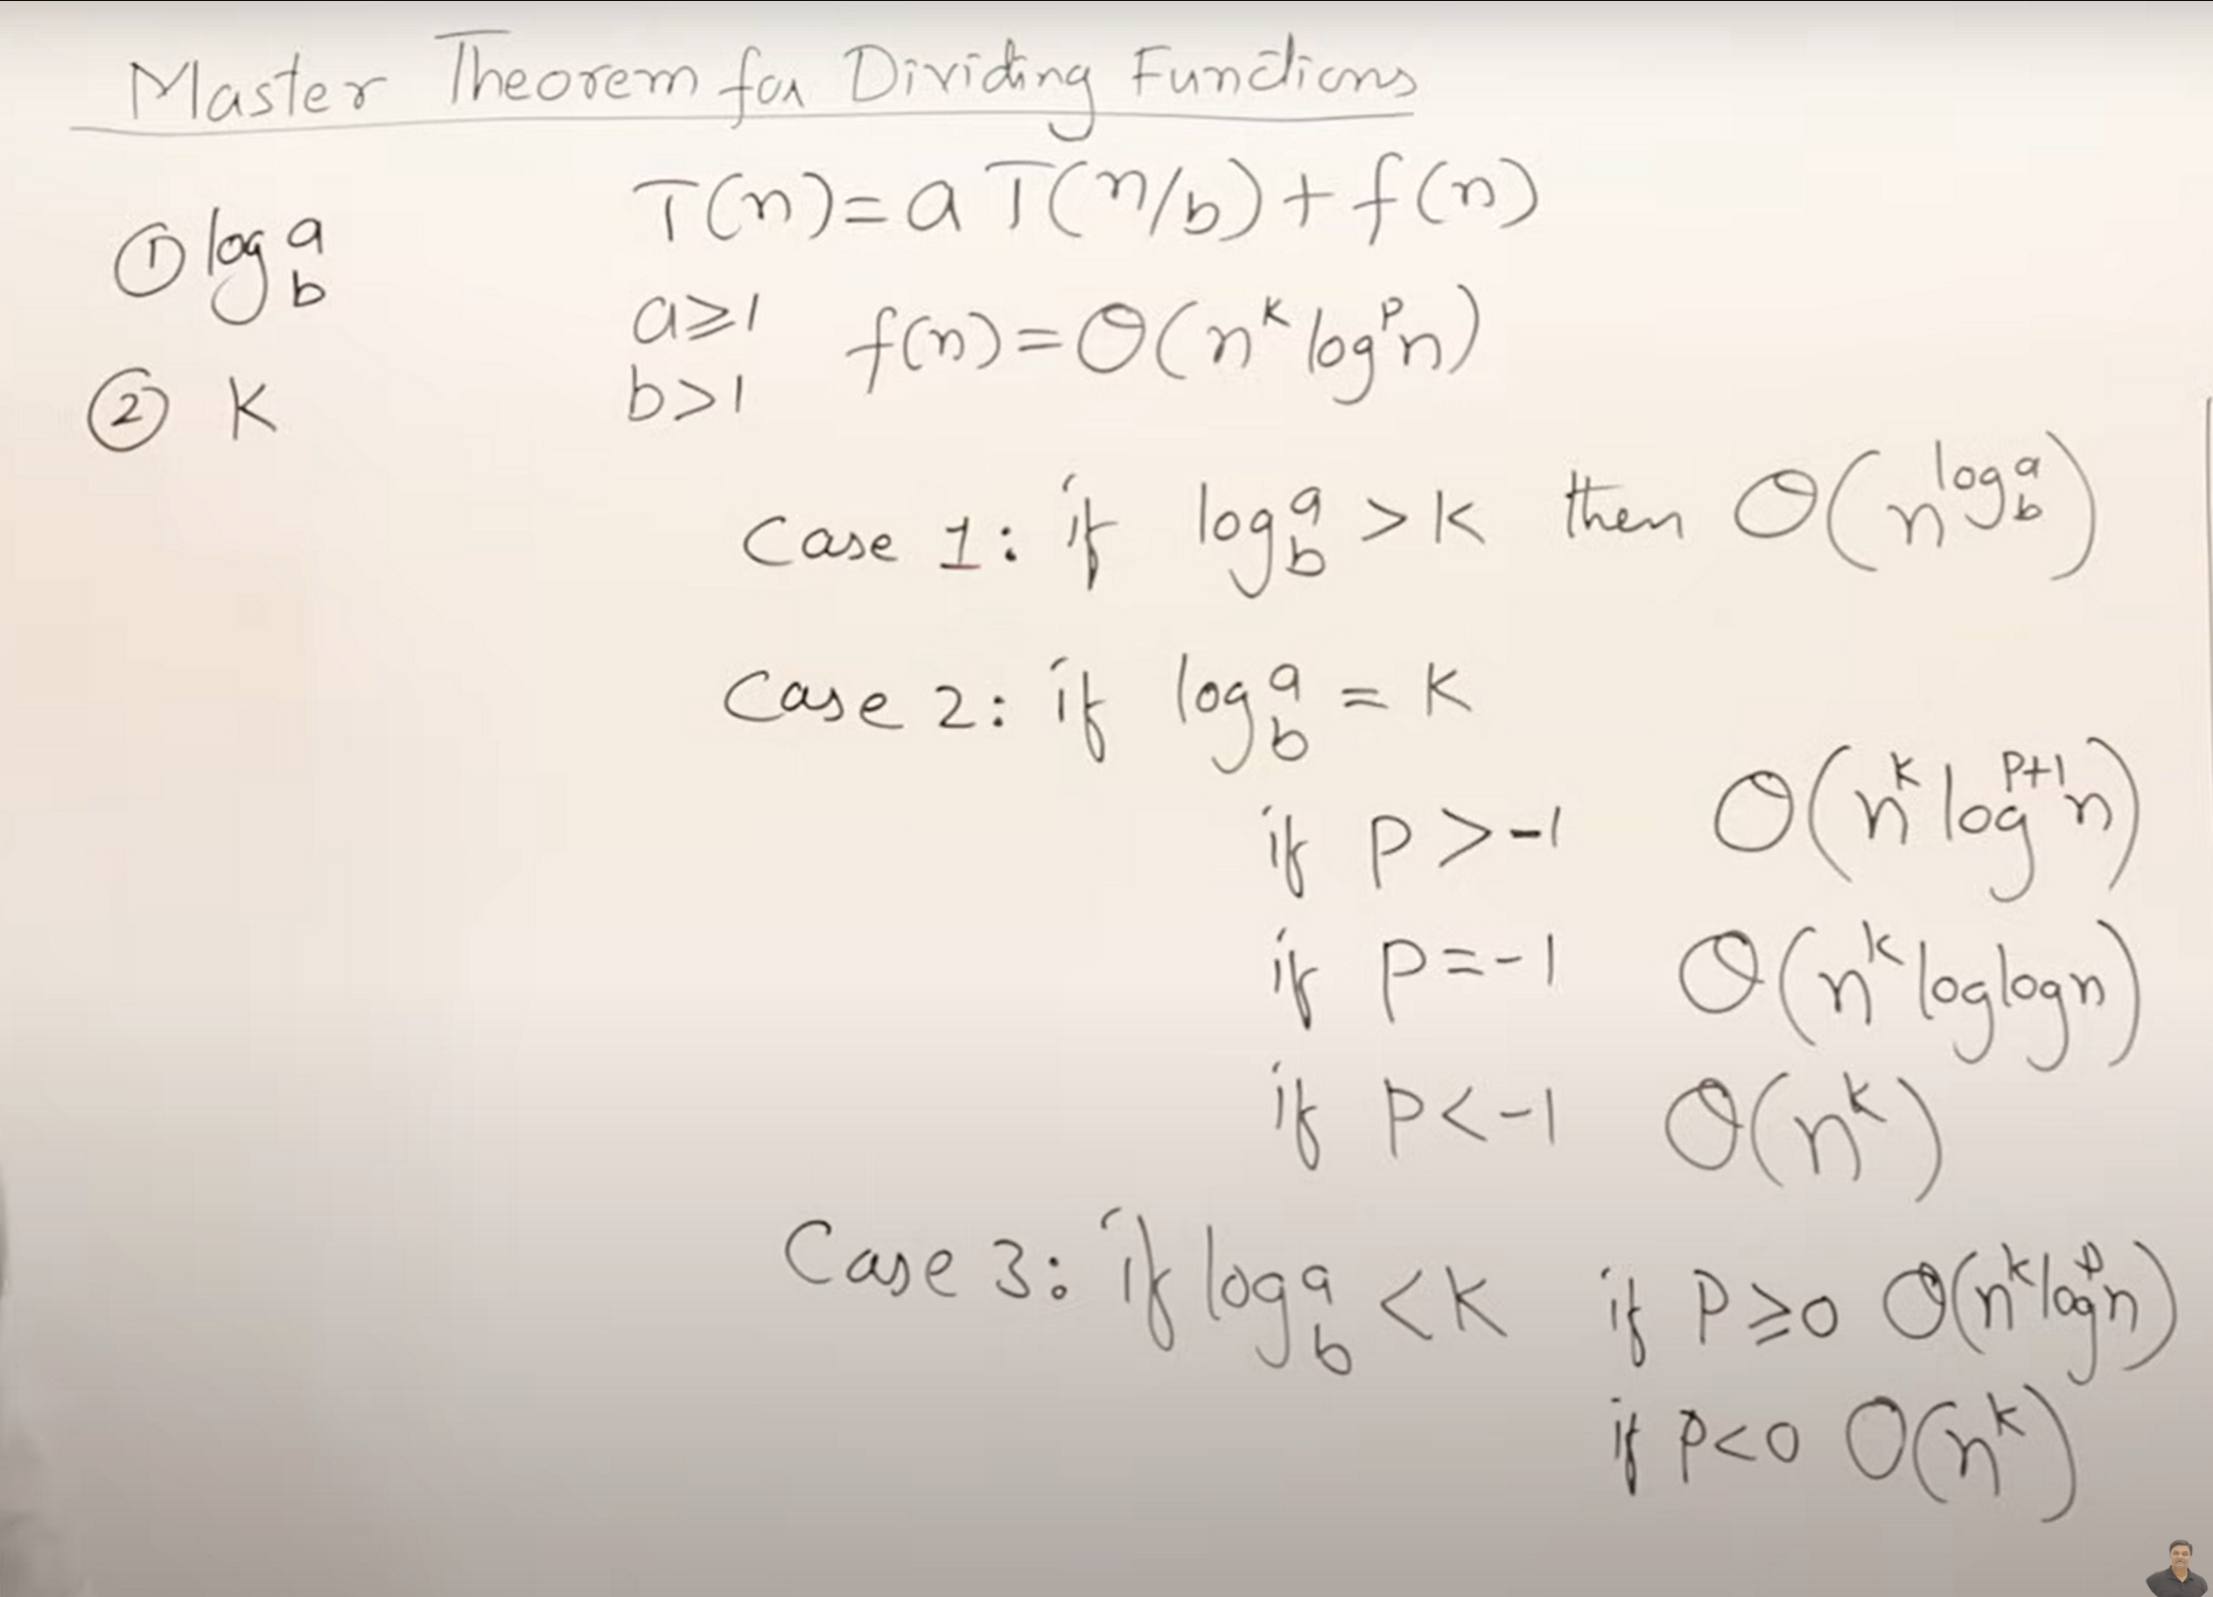 Master Theorem for Dividing Functions
T(n) = a T(n/b) + f(n)
① log_b a
a ≥ 1
b > 1
f(n) = Θ(n^k log^p n)
② K
Case 1: if log_b a > K then Θ(n^{log_b a})
Case 2: if log_b a = K
if P > -1 Θ(n^k log^{P+1} n)
if P = -1 Θ(n^k loglogn)
if P < -1 Θ(n^k)
Case 3: if log_b a < K if P ≥ 0 Θ(n^k log^p n)
if P < 0 O(n^k)